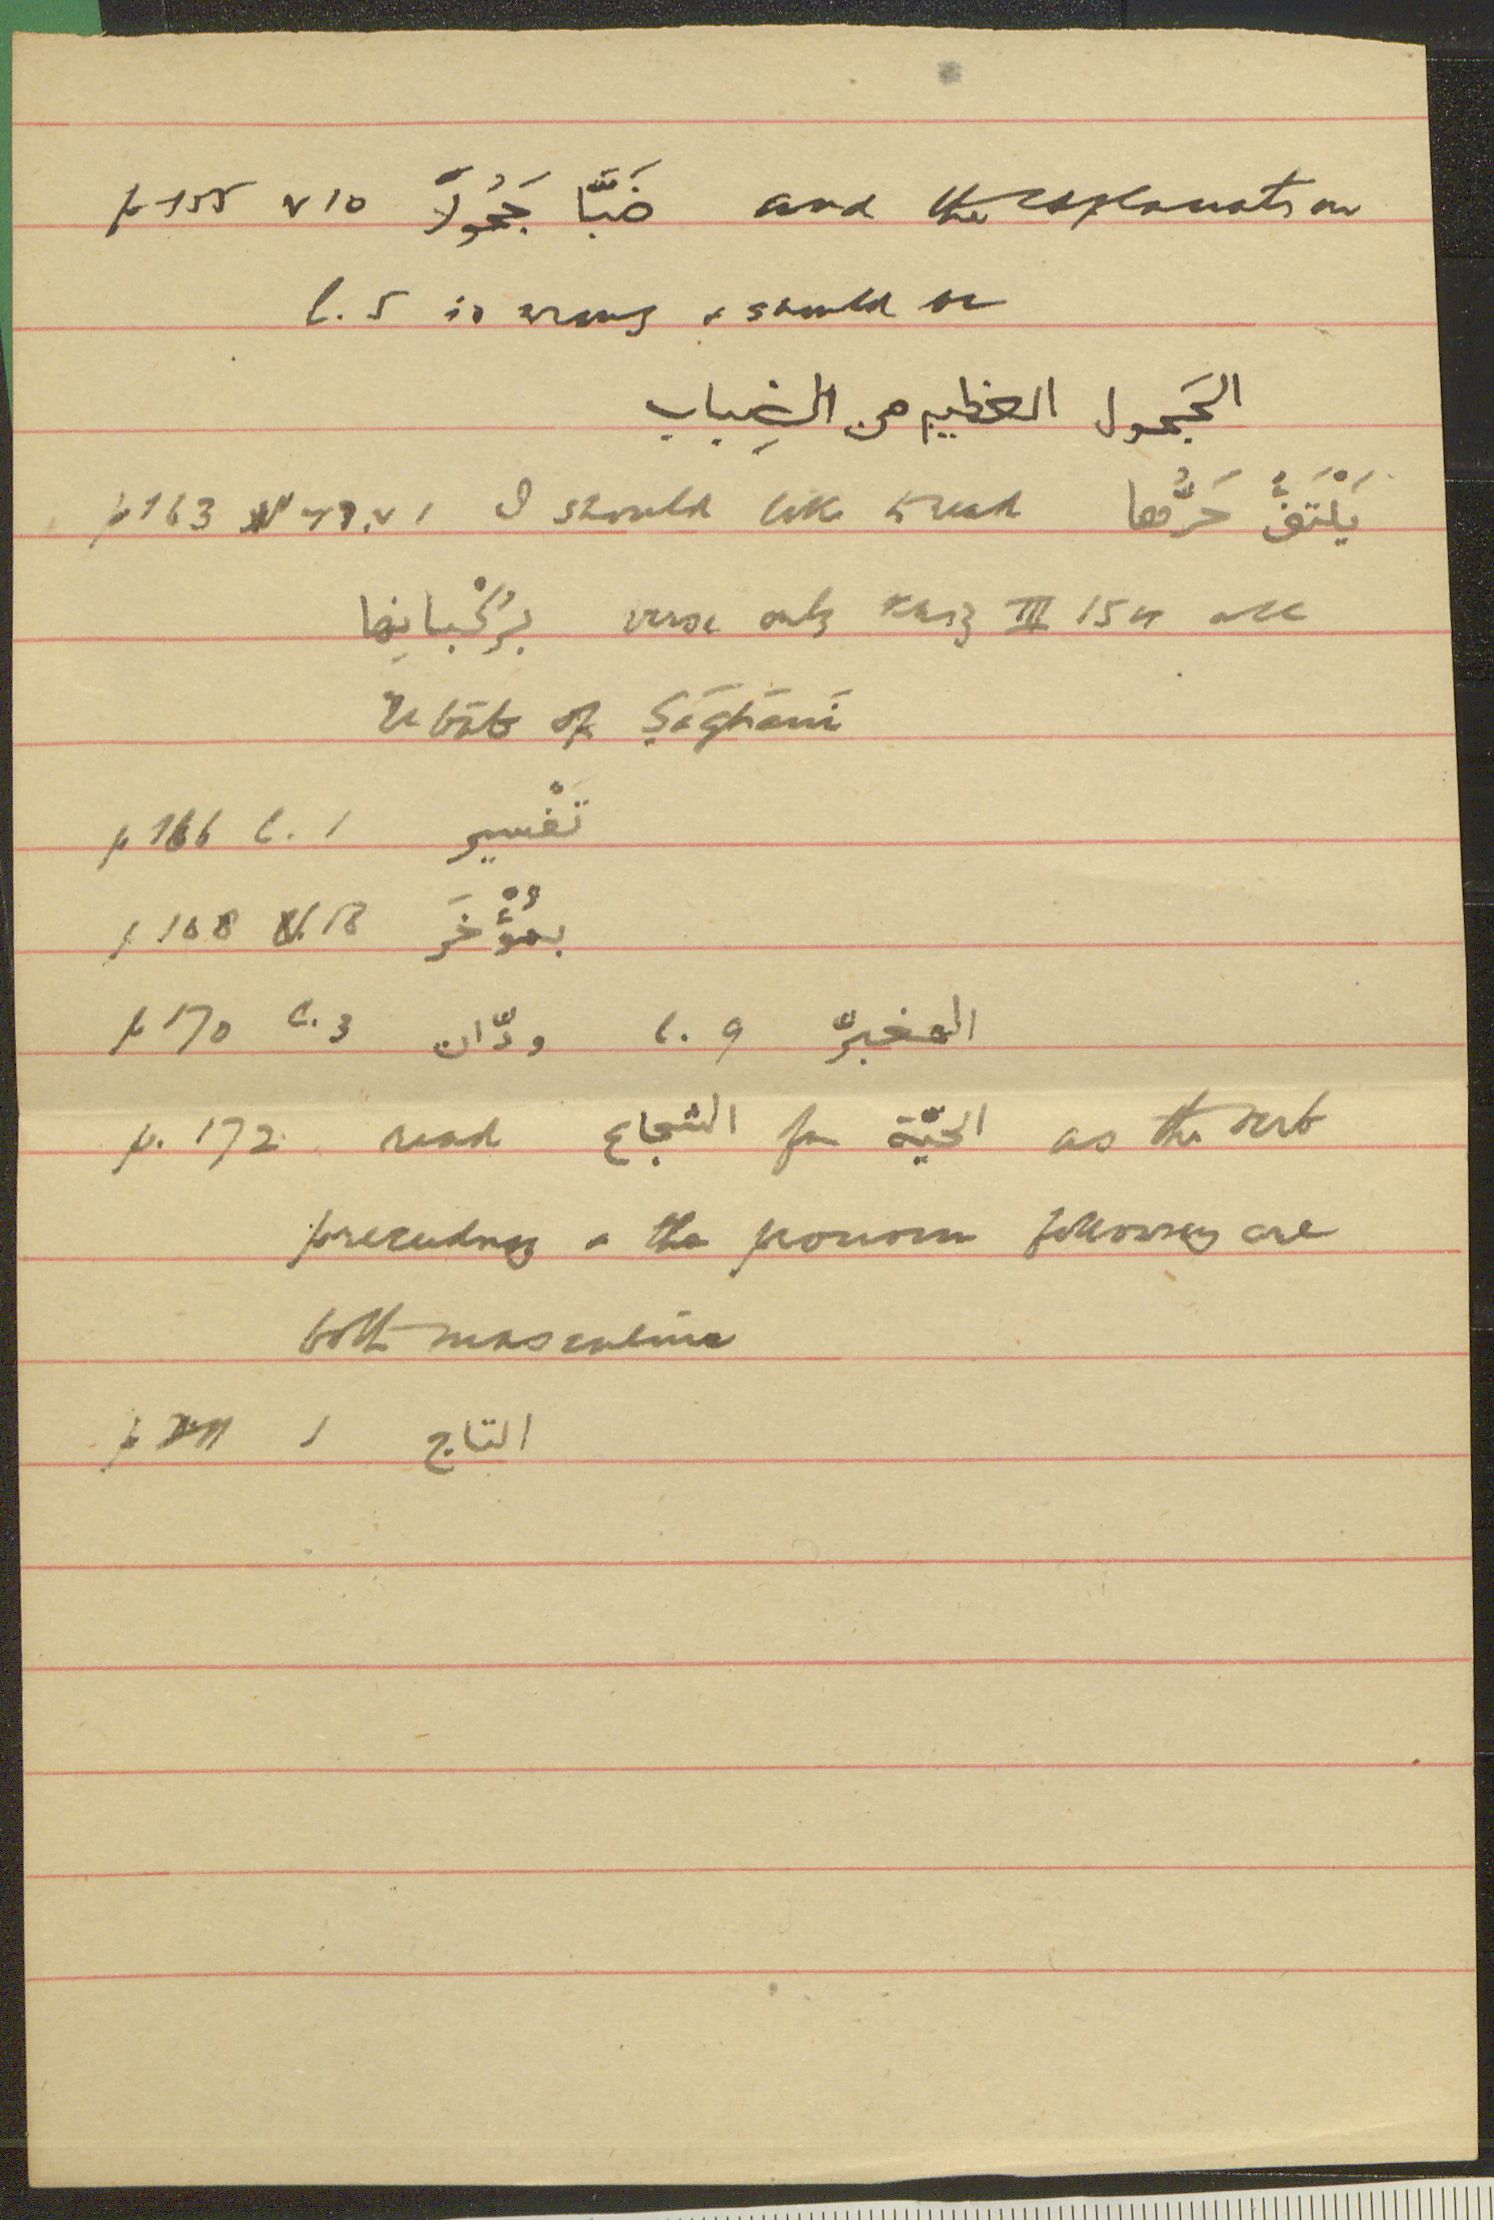 p 155 v 10 ضَبًّا جَحُولً and the explanation
l. 5 is wrong & should be
الجَحول العظيم من الضِباب
p 163 v 1 I should like to read يَلْتَفُّ حَرُّها
بِرُكْبانِها verse only III 154 and
Ubāb of Ṣaghānī
p 166 l. 1 تَفْسير
p 168 بمُؤْخَر
p 170 l. 3 ودّان l. 9 المخبرّ
p. 172 read الشجاع for الحيّة as the verb
preceeding & the pronoun following are
both masculine
p 1 التاج